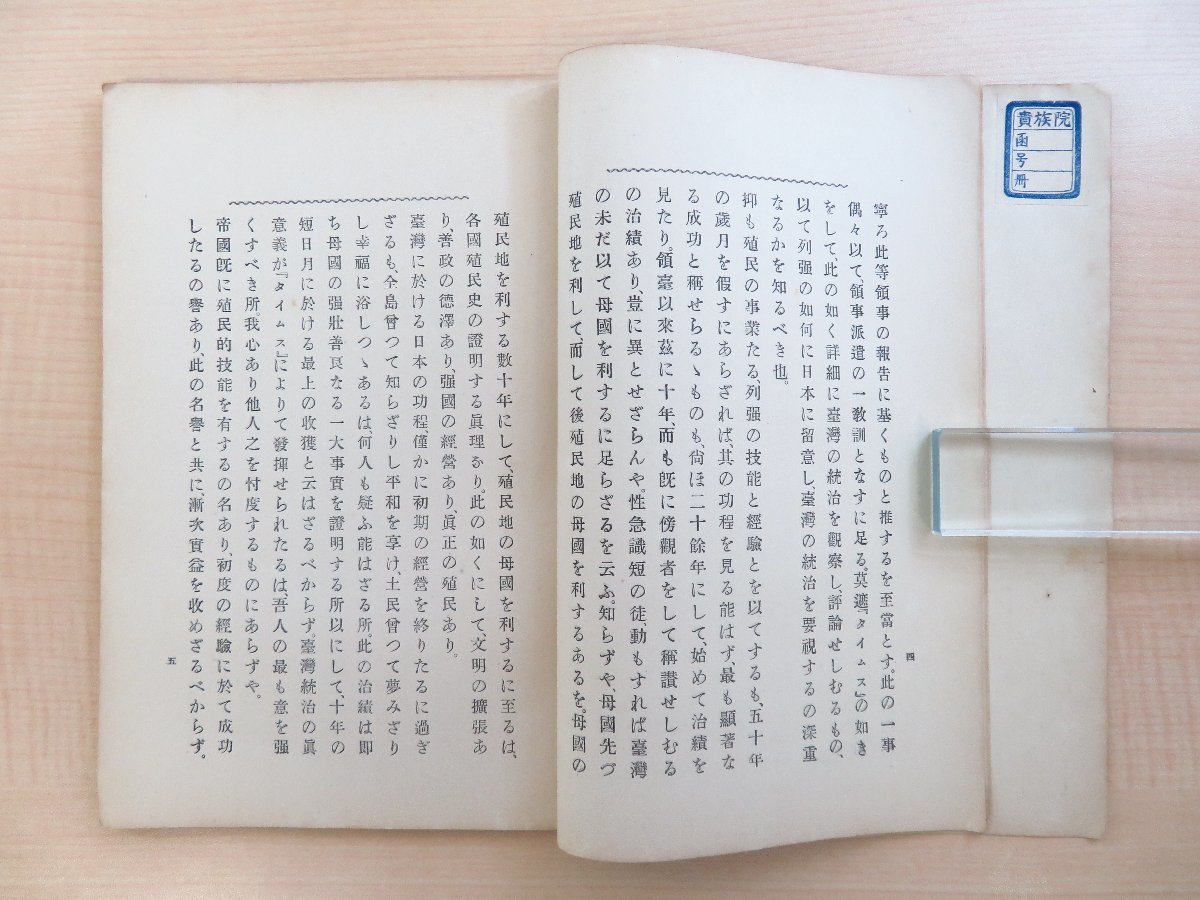 貴族院
函
号
冊
寧ろ此等領事の報告に基くものと推するを至當とす。此の一事
偶々以て、領事派遣の一敎訓となすに足る。莫遮『タイムス』の如き
をして、此の如く詳細に臺灣の統治を觀察し、評論せしむるもの、
以て列强の如何に日本に留意し、臺灣の統治を要視するの深重
なるかを知るべき也。
抑も殖民の事業たる、列强の技能と經驗とを以てするも、五十年
の歲月を假すにあらざれば、其の功程を見る能はず、最も顯著な
る成功と稱せらるゝものも、尙ほ二十餘年にして、始めて治績を
見たり。領臺以來茲に十年、而も旣に傍觀者をして稱讃せしむる
の治績あり、豈に異とせざらんや。性急識短の徒、動もすれば臺灣
の未だ以て母國を利するに足らざるを云ふ。知らずや、母國先づ
殖民地を利して、而して後殖民地の母國を利するあるを。母國の
四
殖民地を利する數十年にして、殖民地の母國を利するに至るは、
各國殖民史の證明する眞理なり。此の如くにして、文明の擴張あ
り、善政の德澤あり、强國の經營あり、眞正の殖民あり。
臺灣に於ける日本の功程、僅かに初期の經營を終りたるに過ぎ
ざるも、全島曾つて知らざりし平和を享け、土民曾つて夢みざり
し幸福に浴しつゝあるは、何人も疑ふ能はざる所。此の治績は卽
ち母國の强壯善良なる一大事實を證明する所以にして、十年の
短日月に於ける最上の收獲と云はざるべからず。臺灣統治の眞
意義が『タイムス』によりて發揮せられたるは、吾人の最も意を强
くすべき所。我心あり他人之を忖度するものにあらずや。
帝國旣に殖民的技能を有するの名あり、初度の經驗に於て成功
したるの譽あり、此の名譽と共に、漸次實益を收めざるべからず。
五